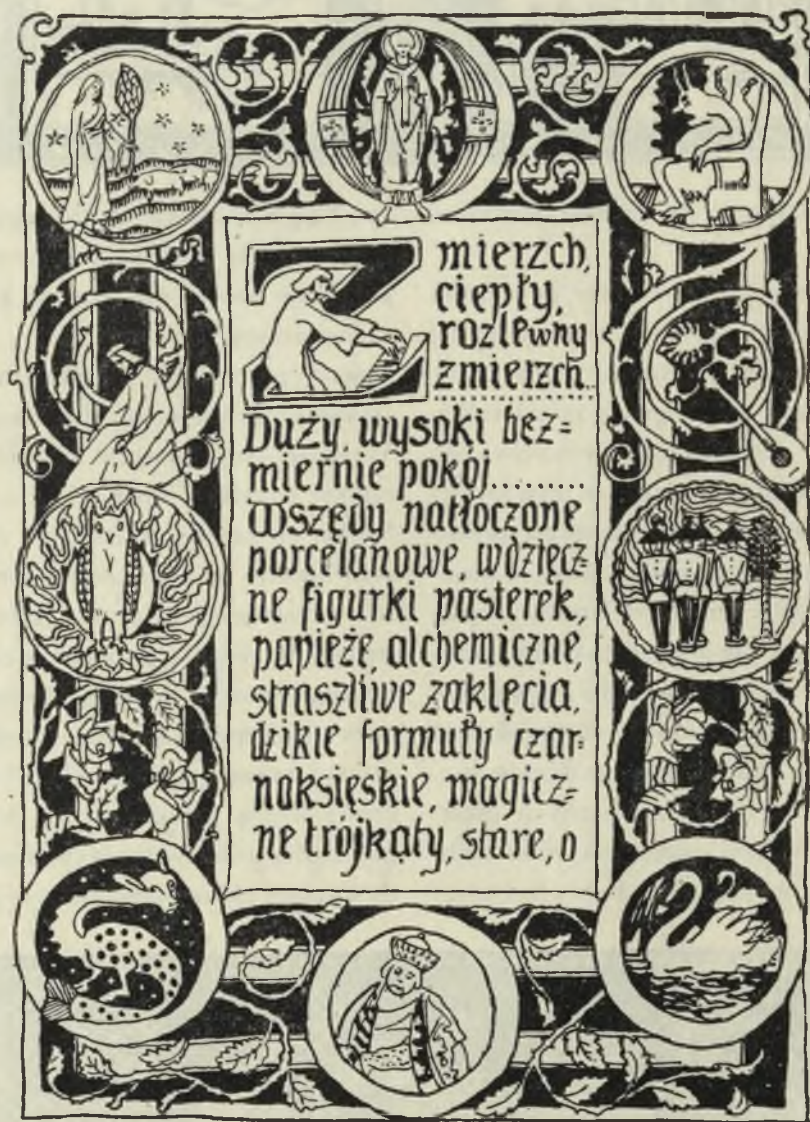 Zmierzch,
ciepły,
rozlewny
zmierzch...
Duży, wysoki bez=
miernie pokój.........
Wszędy natłoczone
porcelanowe, wdzięcz=
ne figurki pasterek,
papieże, alchemiczne,
straszliwe zaklęcia,
dzikie formuły czar=
noksięskie, magicz=
ne trójkąty, stare, o